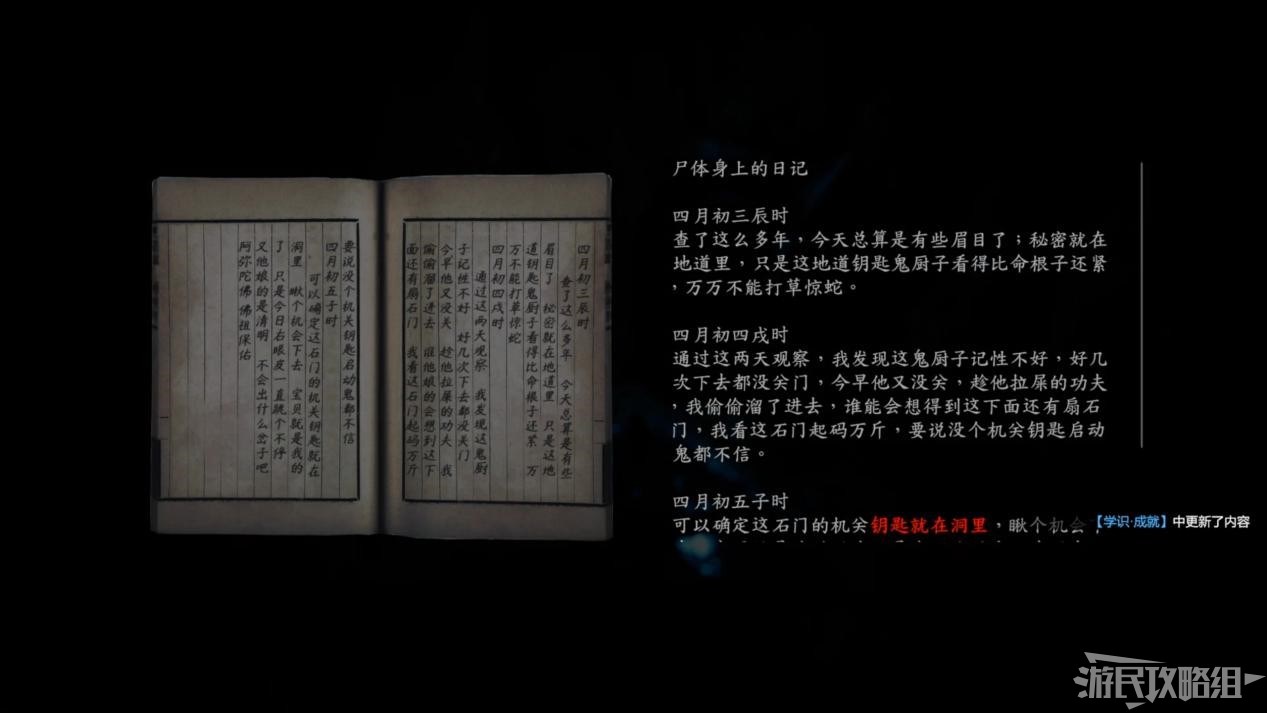 四月初三辰时
查了这么多年 今天总算是有些
眉目了 秘密就在地道里 只是这地
道钥匙鬼厨子看得比命根子还紧 万
万不能打草惊蛇
四月初四戌时
通过这两天观察 我发现这鬼厨
子记性不好 好几次下去都没关门
今早他又没关 趁他拉屎的功夫 我
偷偷溜了进去 谁他娘的会想到这下
面还有扇石门 我看这石门起码万斤
要说没个机关钥匙启动鬼都不信
四月初五子时
可以确定这石门的机关钥匙就在
洞里 瞅个机会下去 宝贝就是我的
了 只是今日右眼皮一直跳个不停
又他娘的是清明 不会出什么岔子吧
阿弥陀佛 佛祖保佑
尸体身上的日记
四月初三辰时
查了这么多年，今天总算是有些眉目了；秘密就在
地道里，只是这地道钥匙鬼厨子看得比命根子还紧
，万万不能打草惊蛇。
四月初四戌时
通过这两天观察，我发现这鬼厨子记性不好，好几
次下去都没关门，今早他又没关，趁他拉屎的功夫
，我偷偷溜了进去，谁能会想得到这下面还有扇石
门，我看这石门起码万斤，要说没个机关钥匙启动
鬼都不信。
四月初五子时
可以确定这石门的机关钥匙就在洞里，瞅个机会
【学识·成就】中更新了内容
游民攻略组